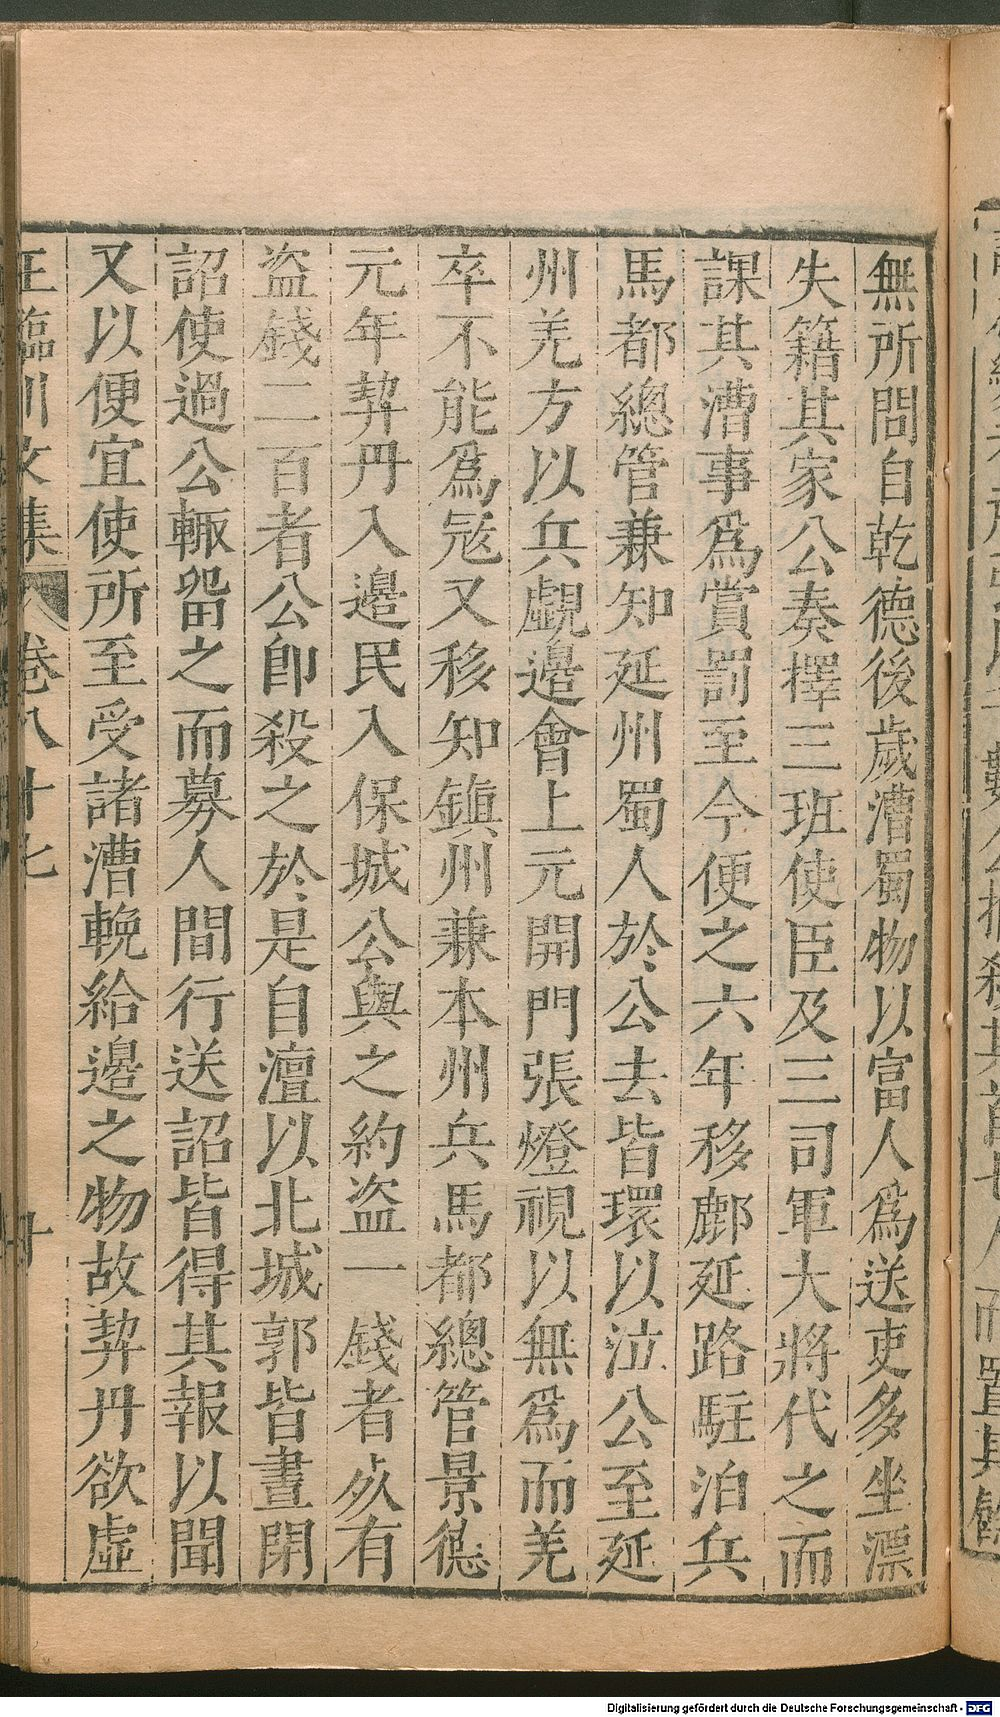 無所問自乾德後歲漕蜀物以富人爲送吏多坐漂
失籍其家公奏擇三班使臣及三司軍大將代之而
課其漕事爲賞罰至今便之六年移鄜延路駐泊兵
馬都總管兼知延州蜀人於公去皆環以泣公至延
州羌方以兵覷邊會上元開門張燈視以無爲而羌
卒不能爲寇又移知鎮州兼本州兵馬都總管景德
元年契丹入邊民入保城公與之約盜一錢者死有
盜錢二百者公卽殺之於是自澶以北城郭皆晝閉
詔使過公輒留之而募人間行送詔皆得其報以聞
又以便宜使所至受諸漕輓給邊之物故契丹欲虛
王臨川文集 卷八十七
Digitalisierung gefördert durch die Deutsche Forschungsgemeinschaft - DFG